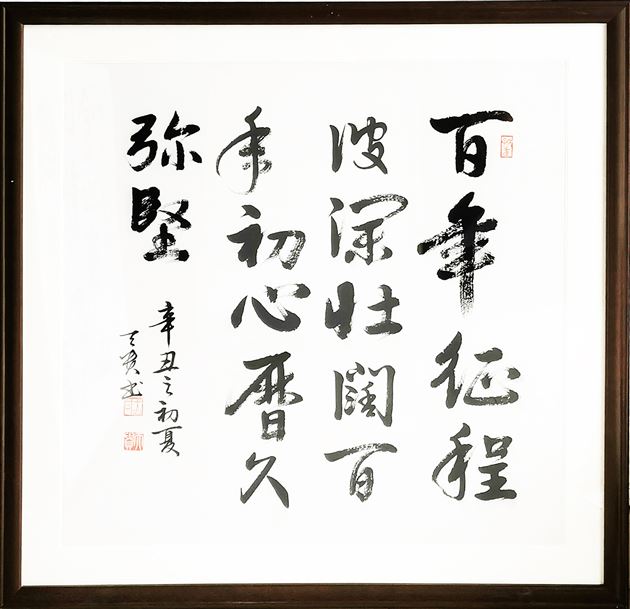 百年征程
波澜壮阔百
年初心曆久
弥堅
辛丑之初夏